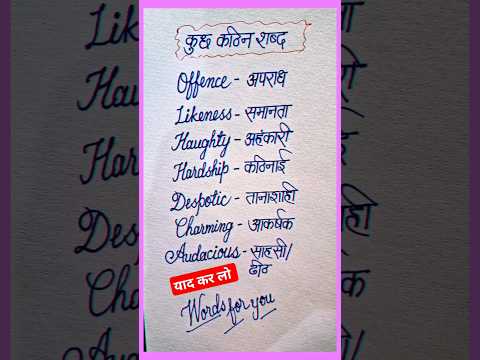 कुछ कठिन शब्द
Offence - अपराध
Likeness - समानता
Haughty - अहंकारी
Hardship - कठिनाई
Despotic - तानाशाही
Charming - आकर्षक
Audacious - साहसी/
ढीठ
याद कर लो
Words for you